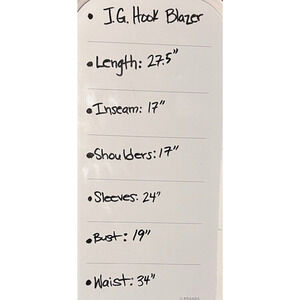 • J.G. Hook Blazer
• Length: 27.5"
• Inseam: 17"
• Shoulders: 17"
• Sleeves: 24"
• Bust: 19"
• Waist: 34"